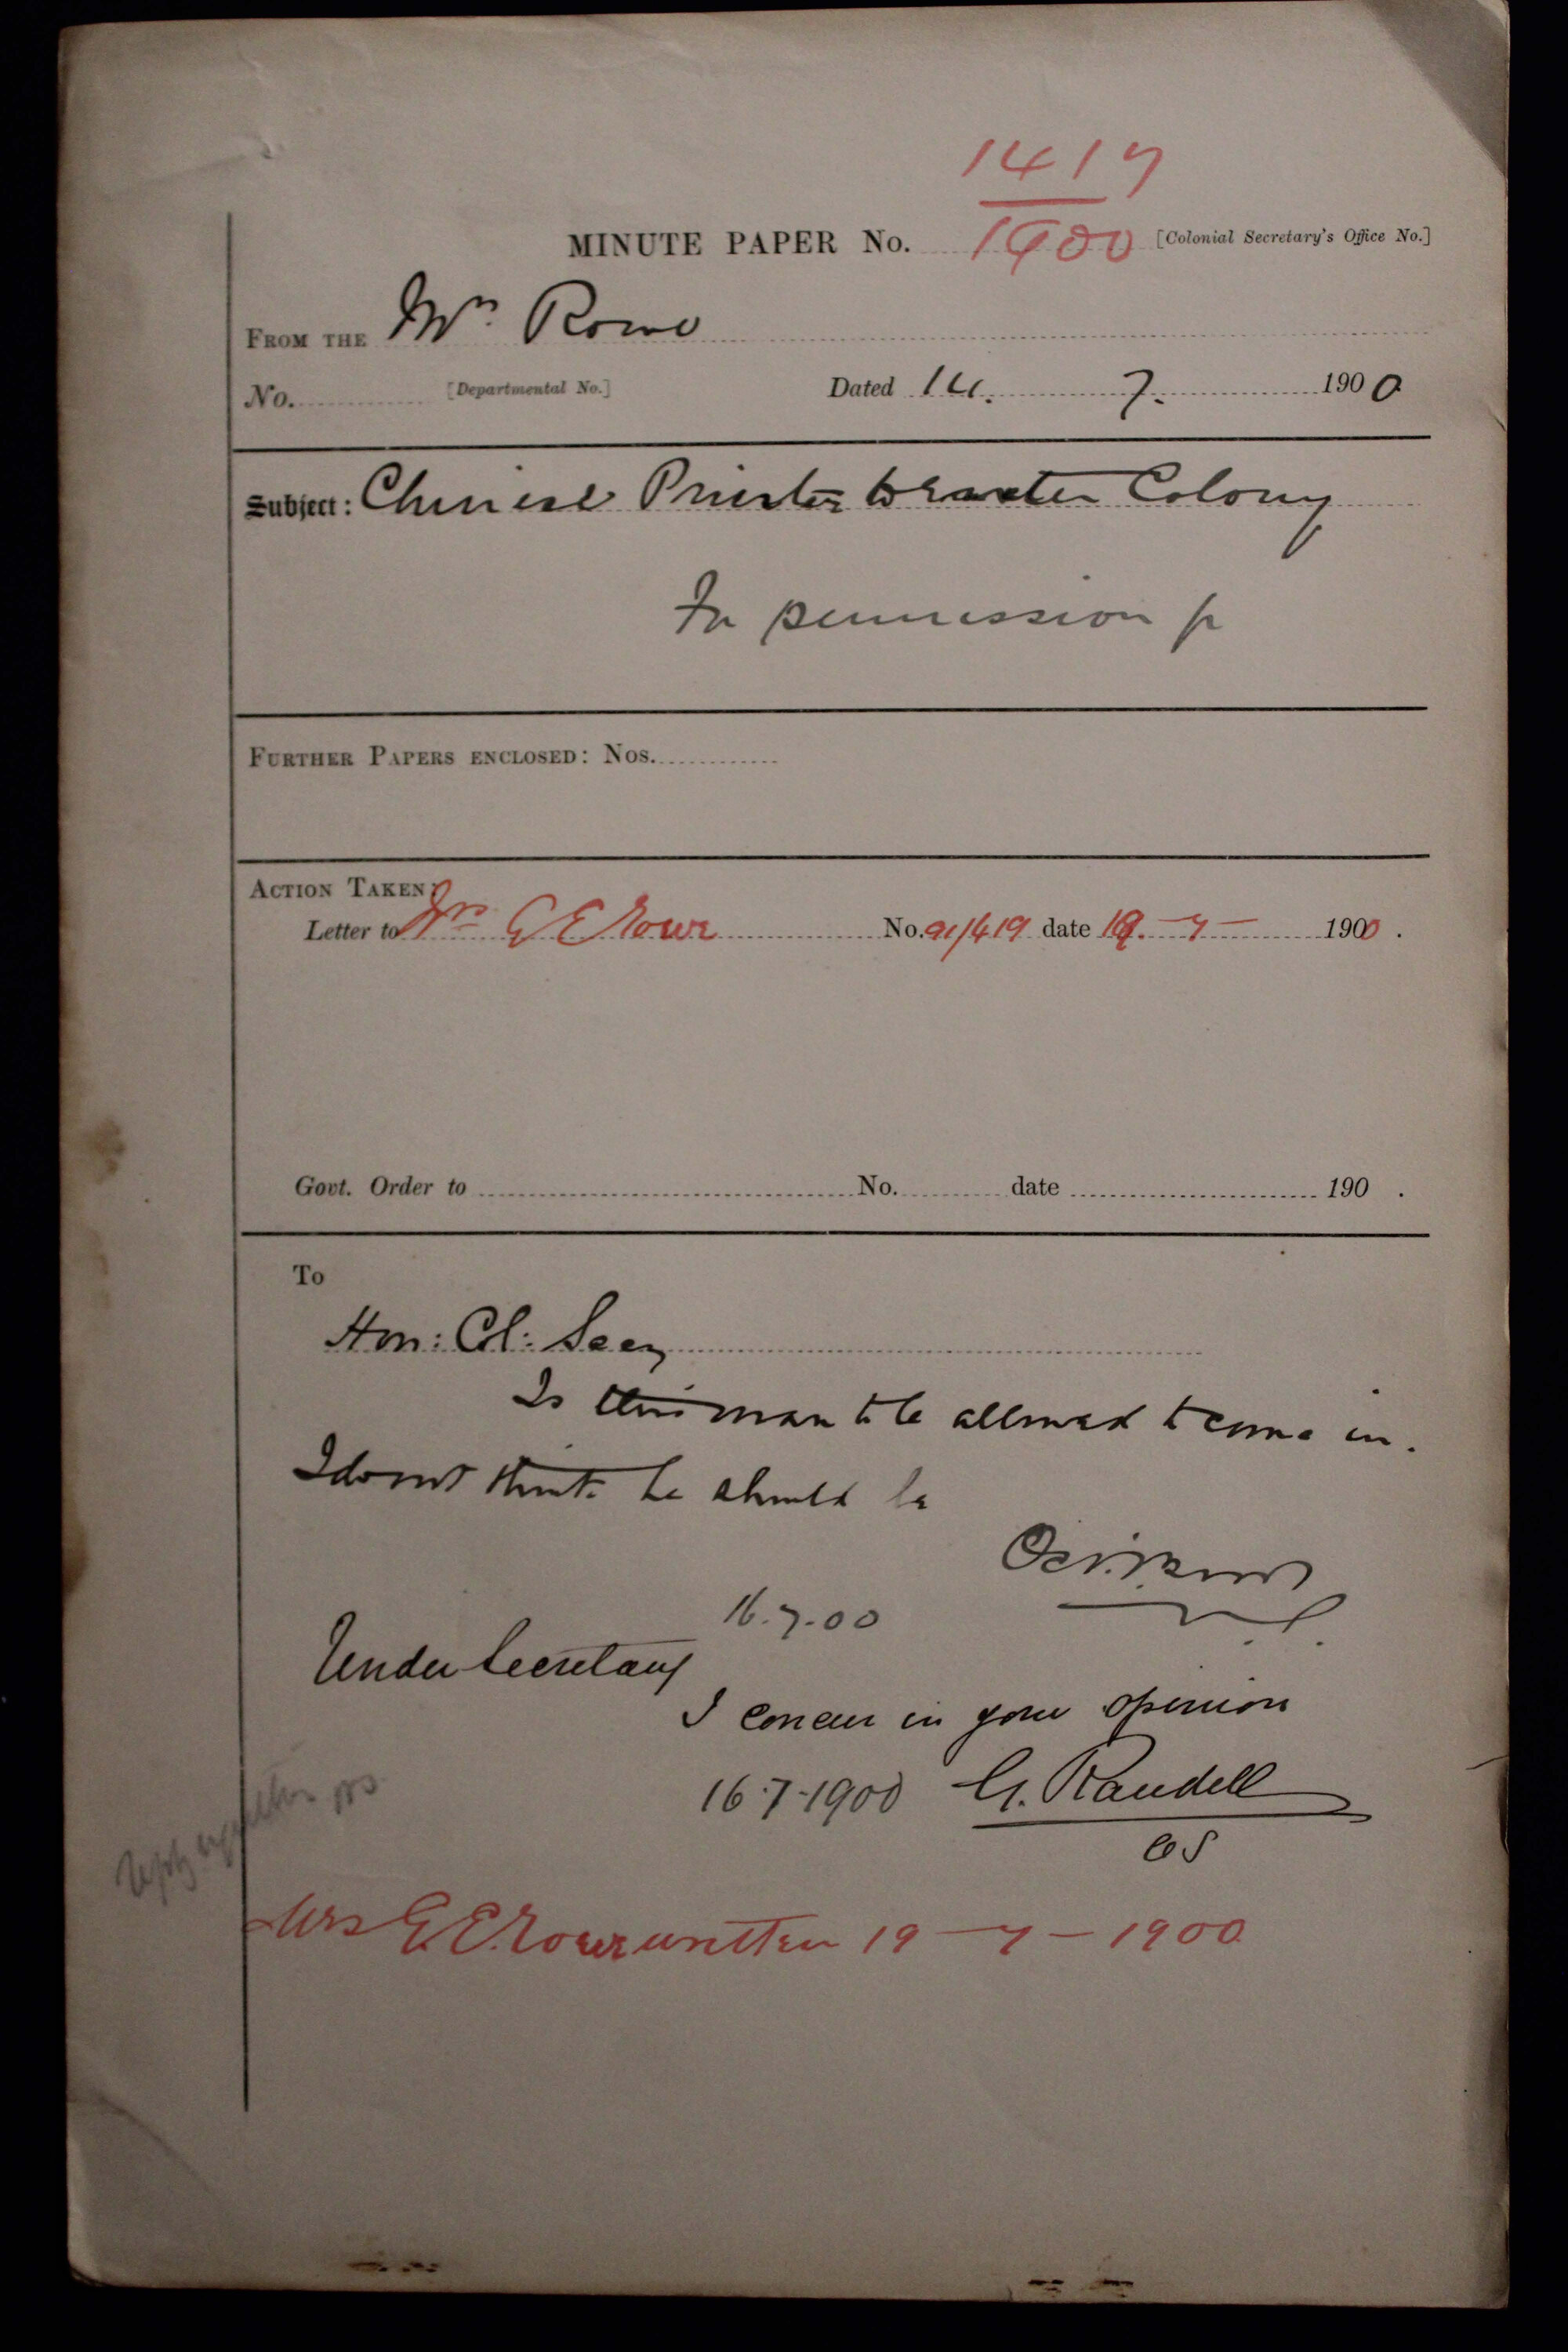 1417
MINUTE PAPER No. 1900 [Colonial Secretary's Office No.]
FROM THE Mrs Rowe
No. [Departmental No.] Dated 14. 7. 1900
Subject: Chinese Priest to enter Colony
For permission for
FURTHER PAPERS ENCLOSED: Nos.
ACTION TAKEN:
Letter to Mrs G E Rowe No. date 19 - 7 - 1900.
Govt. Order to No. date 190 .
To
Hon: Col: Secy
Is this man to be allowed to come in.
I do not think he should be
16.7.00
Under Secretary
I concur in your opinion
16.7.1900 G. Randell
CS
Mrs G. E. Rowe written 19 - 7 - 1900